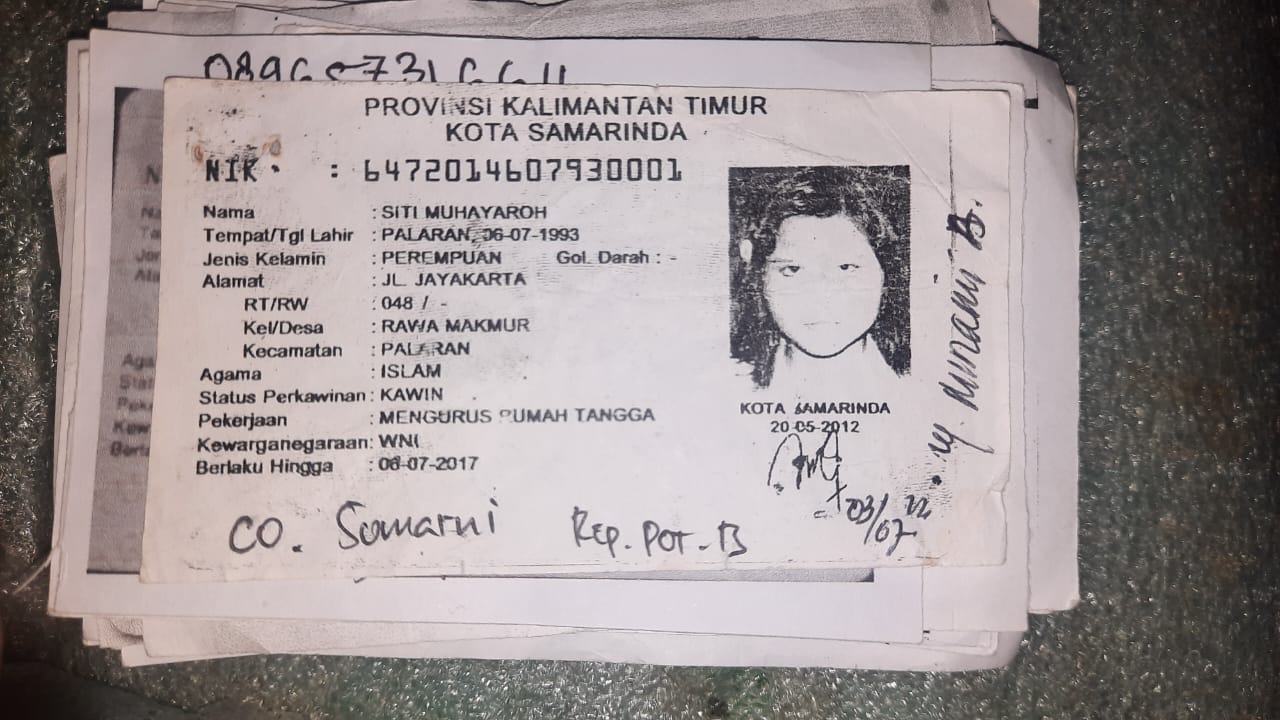 PROVINSI KALIMANTAN TIMUR
KOTA SAMARINDA
NIK : 6472014607930001
Nama : SITI MUHAYAROH
Tempat/Tgl Lahir : PALARAN, 06-07-1993
Jenis Kelamin : PEREMPUAN Gol. Darah : -
Alamat : JL. JAYAKARTA
RT/RW : 048 / -
Kel/Desa : RAWA MAKMUR
Kecamatan : PALARAN
Agama : ISLAM
Status Perkawinan : KAWIN
Pekerjaan : MENGURUS RUMAH TANGGA
Kewarganegaraan : WNI
Berlaku Hingga : 06-07-2017
KOTA SAMARINDA
20-05-2012
03/07
CO. Somarni Rep. Por. B